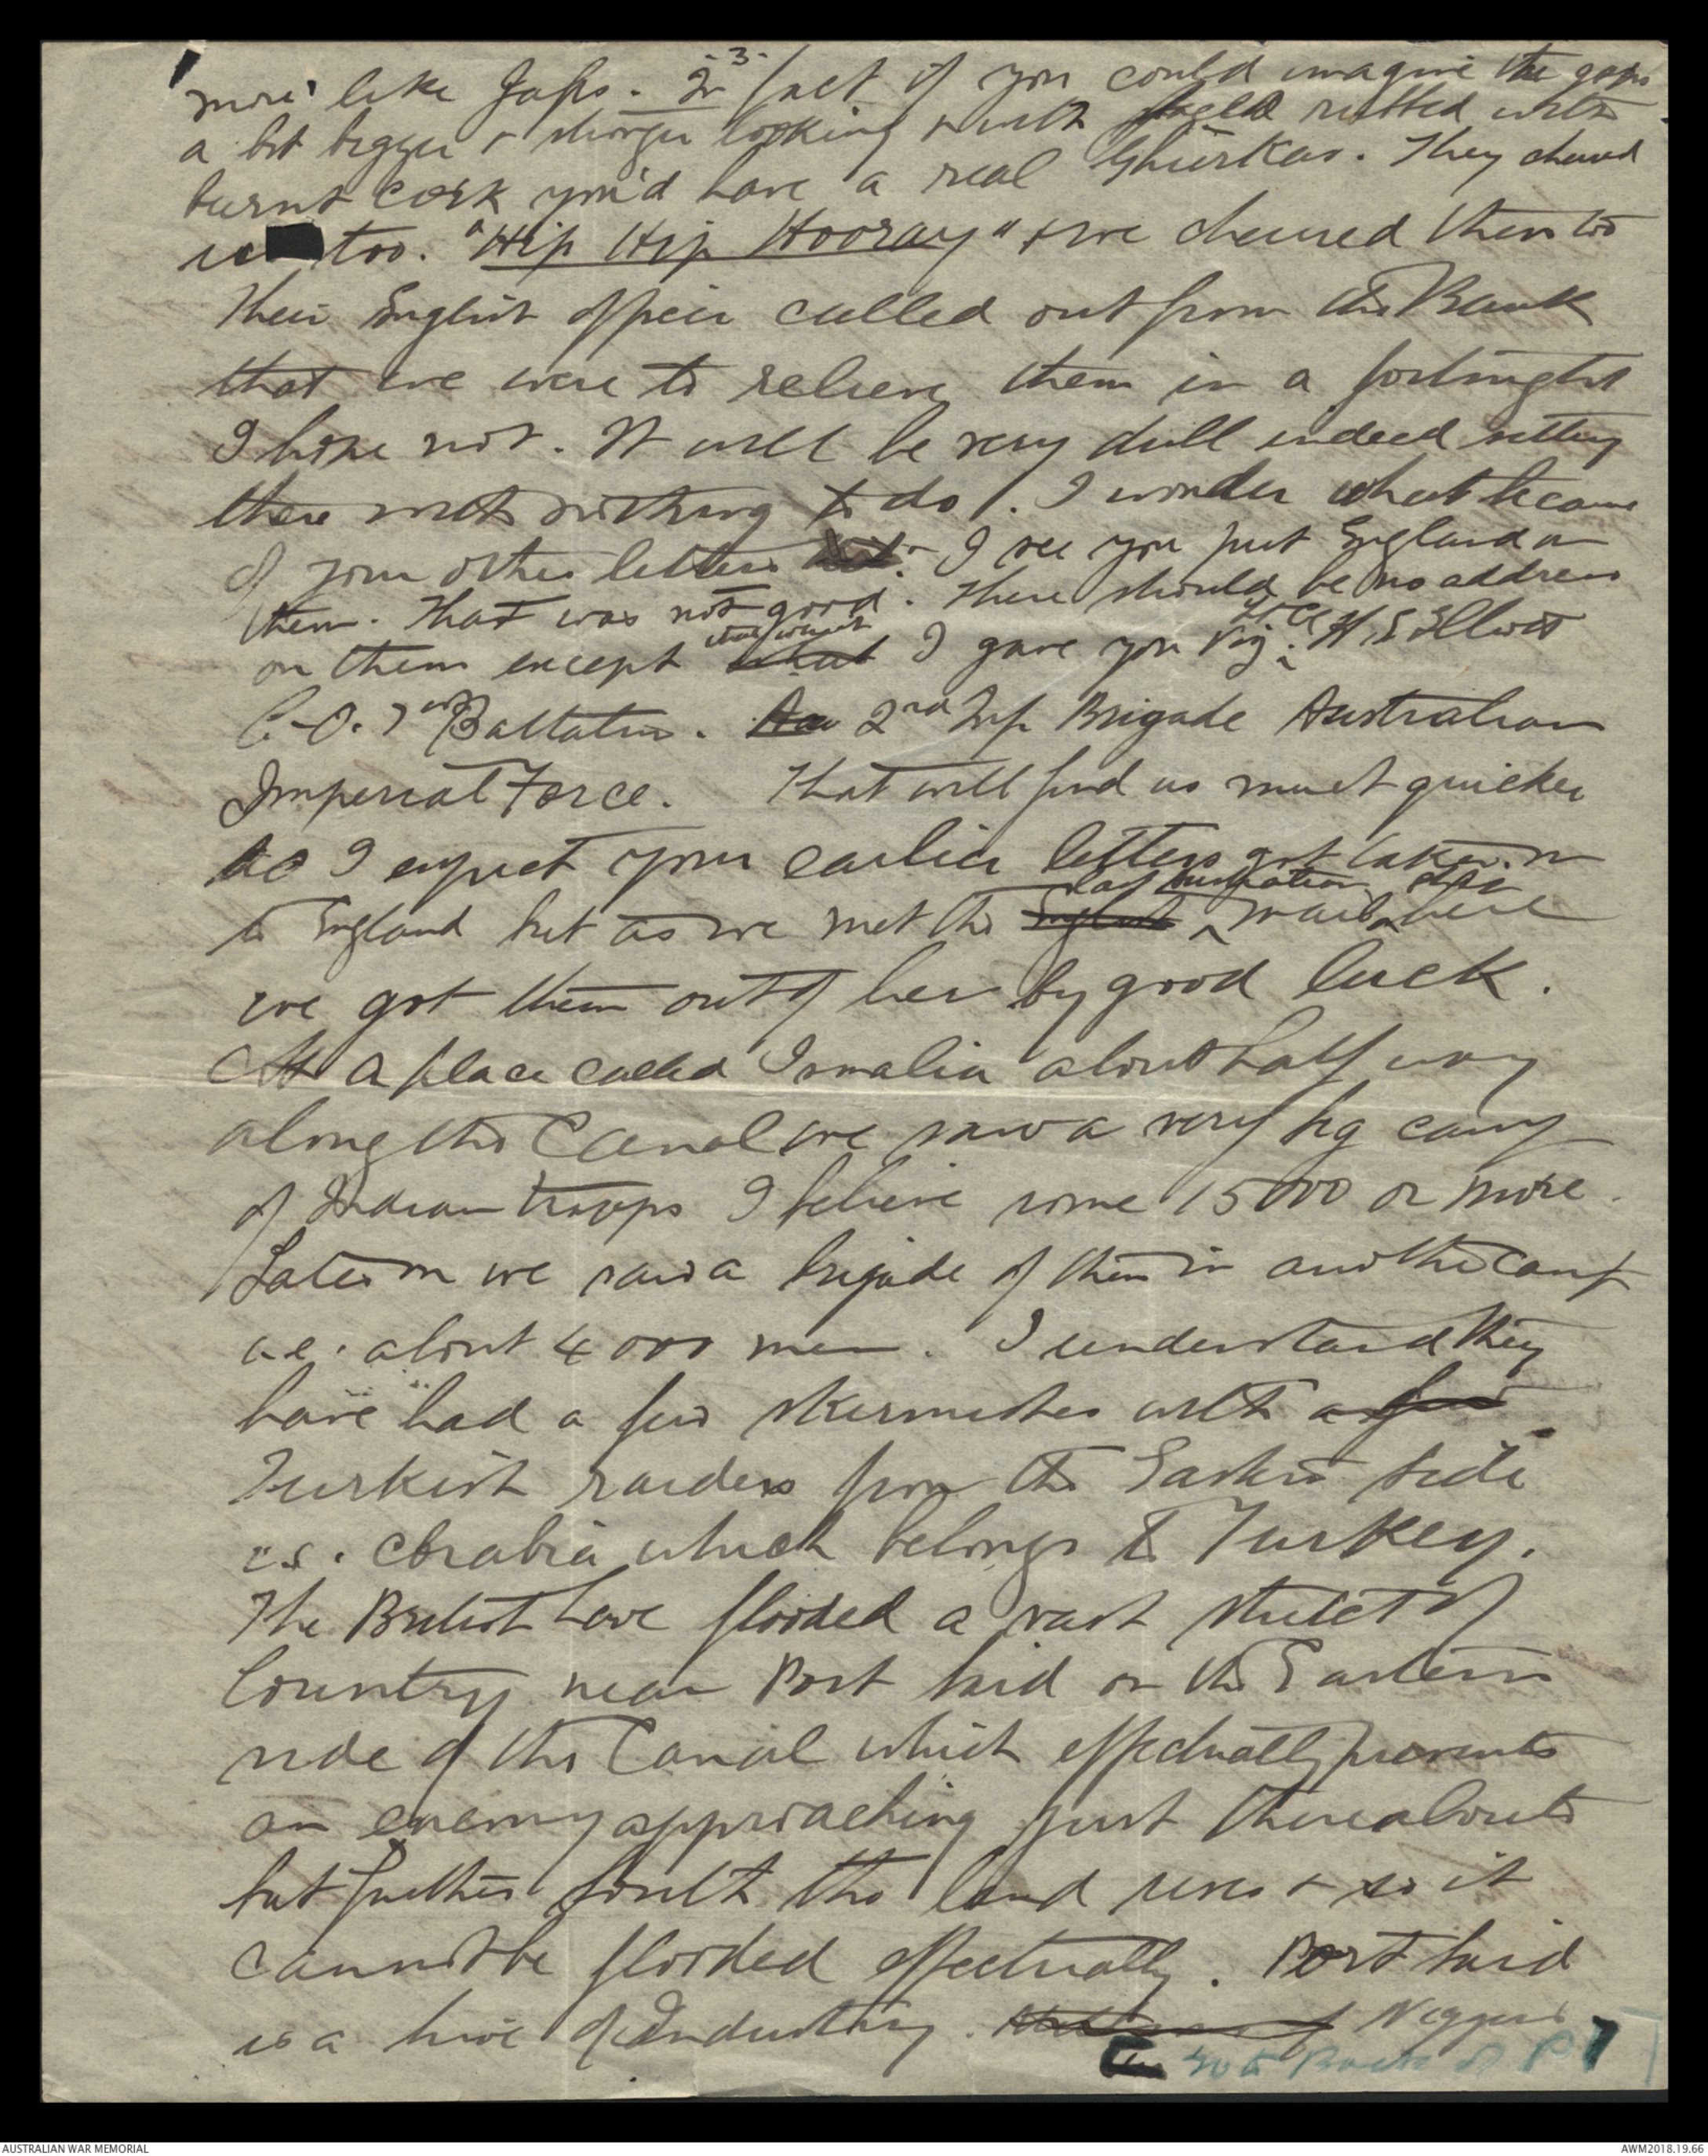 3.
more like Japs. In fact if you could imagine the Japs
a bit bigger & stronger looking & with faces rubbed with
burnt cork you'd have a real Ghurkas. They cheered
us too. "Hip Hip Hooray" & we cheered them too
Their English officer called out from the Bank
that we were to relieve them in a fortnight
I hope not. It will be very dull indeed sitting
there with nothing to do. I wonder what became
of your other letters. I see you put England on
them. That was not good. There should be no address
on them except what I gave you viz. Lt Col H.E. Elliott
C.O. 7th Battalion. 2nd Inf Brigade Australian
Imperial Force. That will find us much quicker
as I expect your earlier letters got taken on
to England but as we met the last Australian mail here
we got them out of her by good luck.
At a place called Ismalia about half way
along the Canal we saw a very big camp
of Indian troops I believe some 15000 or more.
Later on we saw a brigade of them in another camp
i.e. about 4000 men. I understand they
have had a few skirmishes with a few
Turkish raiders from the Eastern side
i.e. Arabia which belongs to Turkey.
The British have flooded a vast stretch of
Country near Port Said on the Eastern
side of the Canal which effectually prevents
an enemy approaching just thereabouts
but further south the land rises & so it
cannot be flooded effectually. Port Said
is a hive of Industry. Niggers
AUSTRALIAN WAR MEMORIAL
AWM2018.19.66